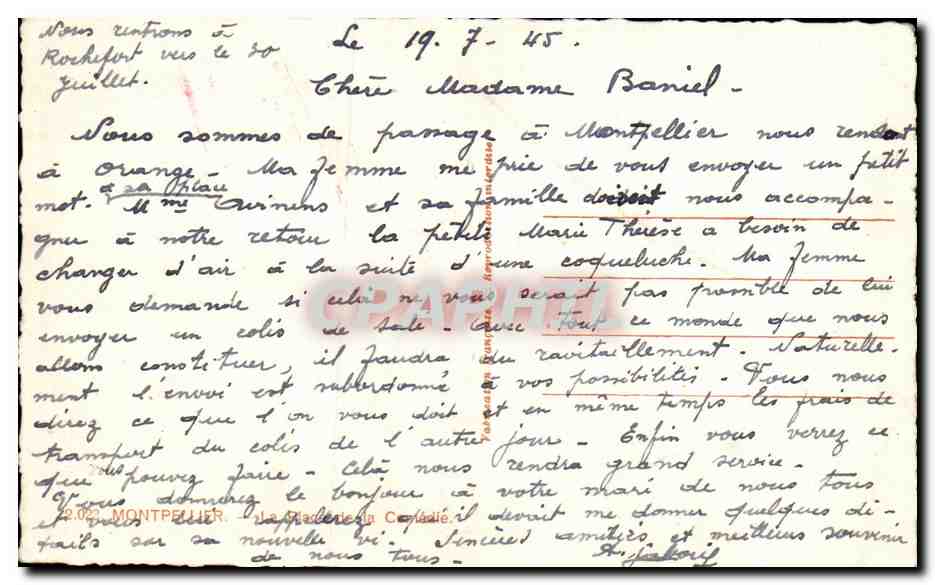 Nous rentrons à
Rochefort vers le 30
Juillet.
Le 19.7-45.
Chère Madame Baniel -
Nous sommes de passage à Montpellier nous rendant
à Orange - Ma femme me prie de vous envoyer un petit
mot. à sa place Mme et sa famille doivent nous accompa-
gner à notre retour la petite Marie Thérèse a besoin de
changer d'air à la suite d'une coqueluche. Ma femme
vous demande si celà ne vous serait pas possible de lui
envoyer un colis de sale - avec tout ce monde que nous
allons constituer, il faudra du ravitaillement. Naturelle-
ment l'envoi est subordonné à vos possibilités - Vous nous
direz ce que l'on vous doit et en même temps les frais de
transport du colis de l'autre jour - Enfin vous verrez ce
que vous pouvez faire - Celà nous rendra grand service -
Vous donnerez le bonjour à votre mari de nous tous
et vous lui qu'il devait me donner quelques dé-
tails sur sa nouvelle vi. Sincères amitiés et meilleurs souvenir
de nous tous -
Fabrication Française Reproduction interdite
2.022 MONTPELLIER. - La Place de la Comédie.
CPAPHIL